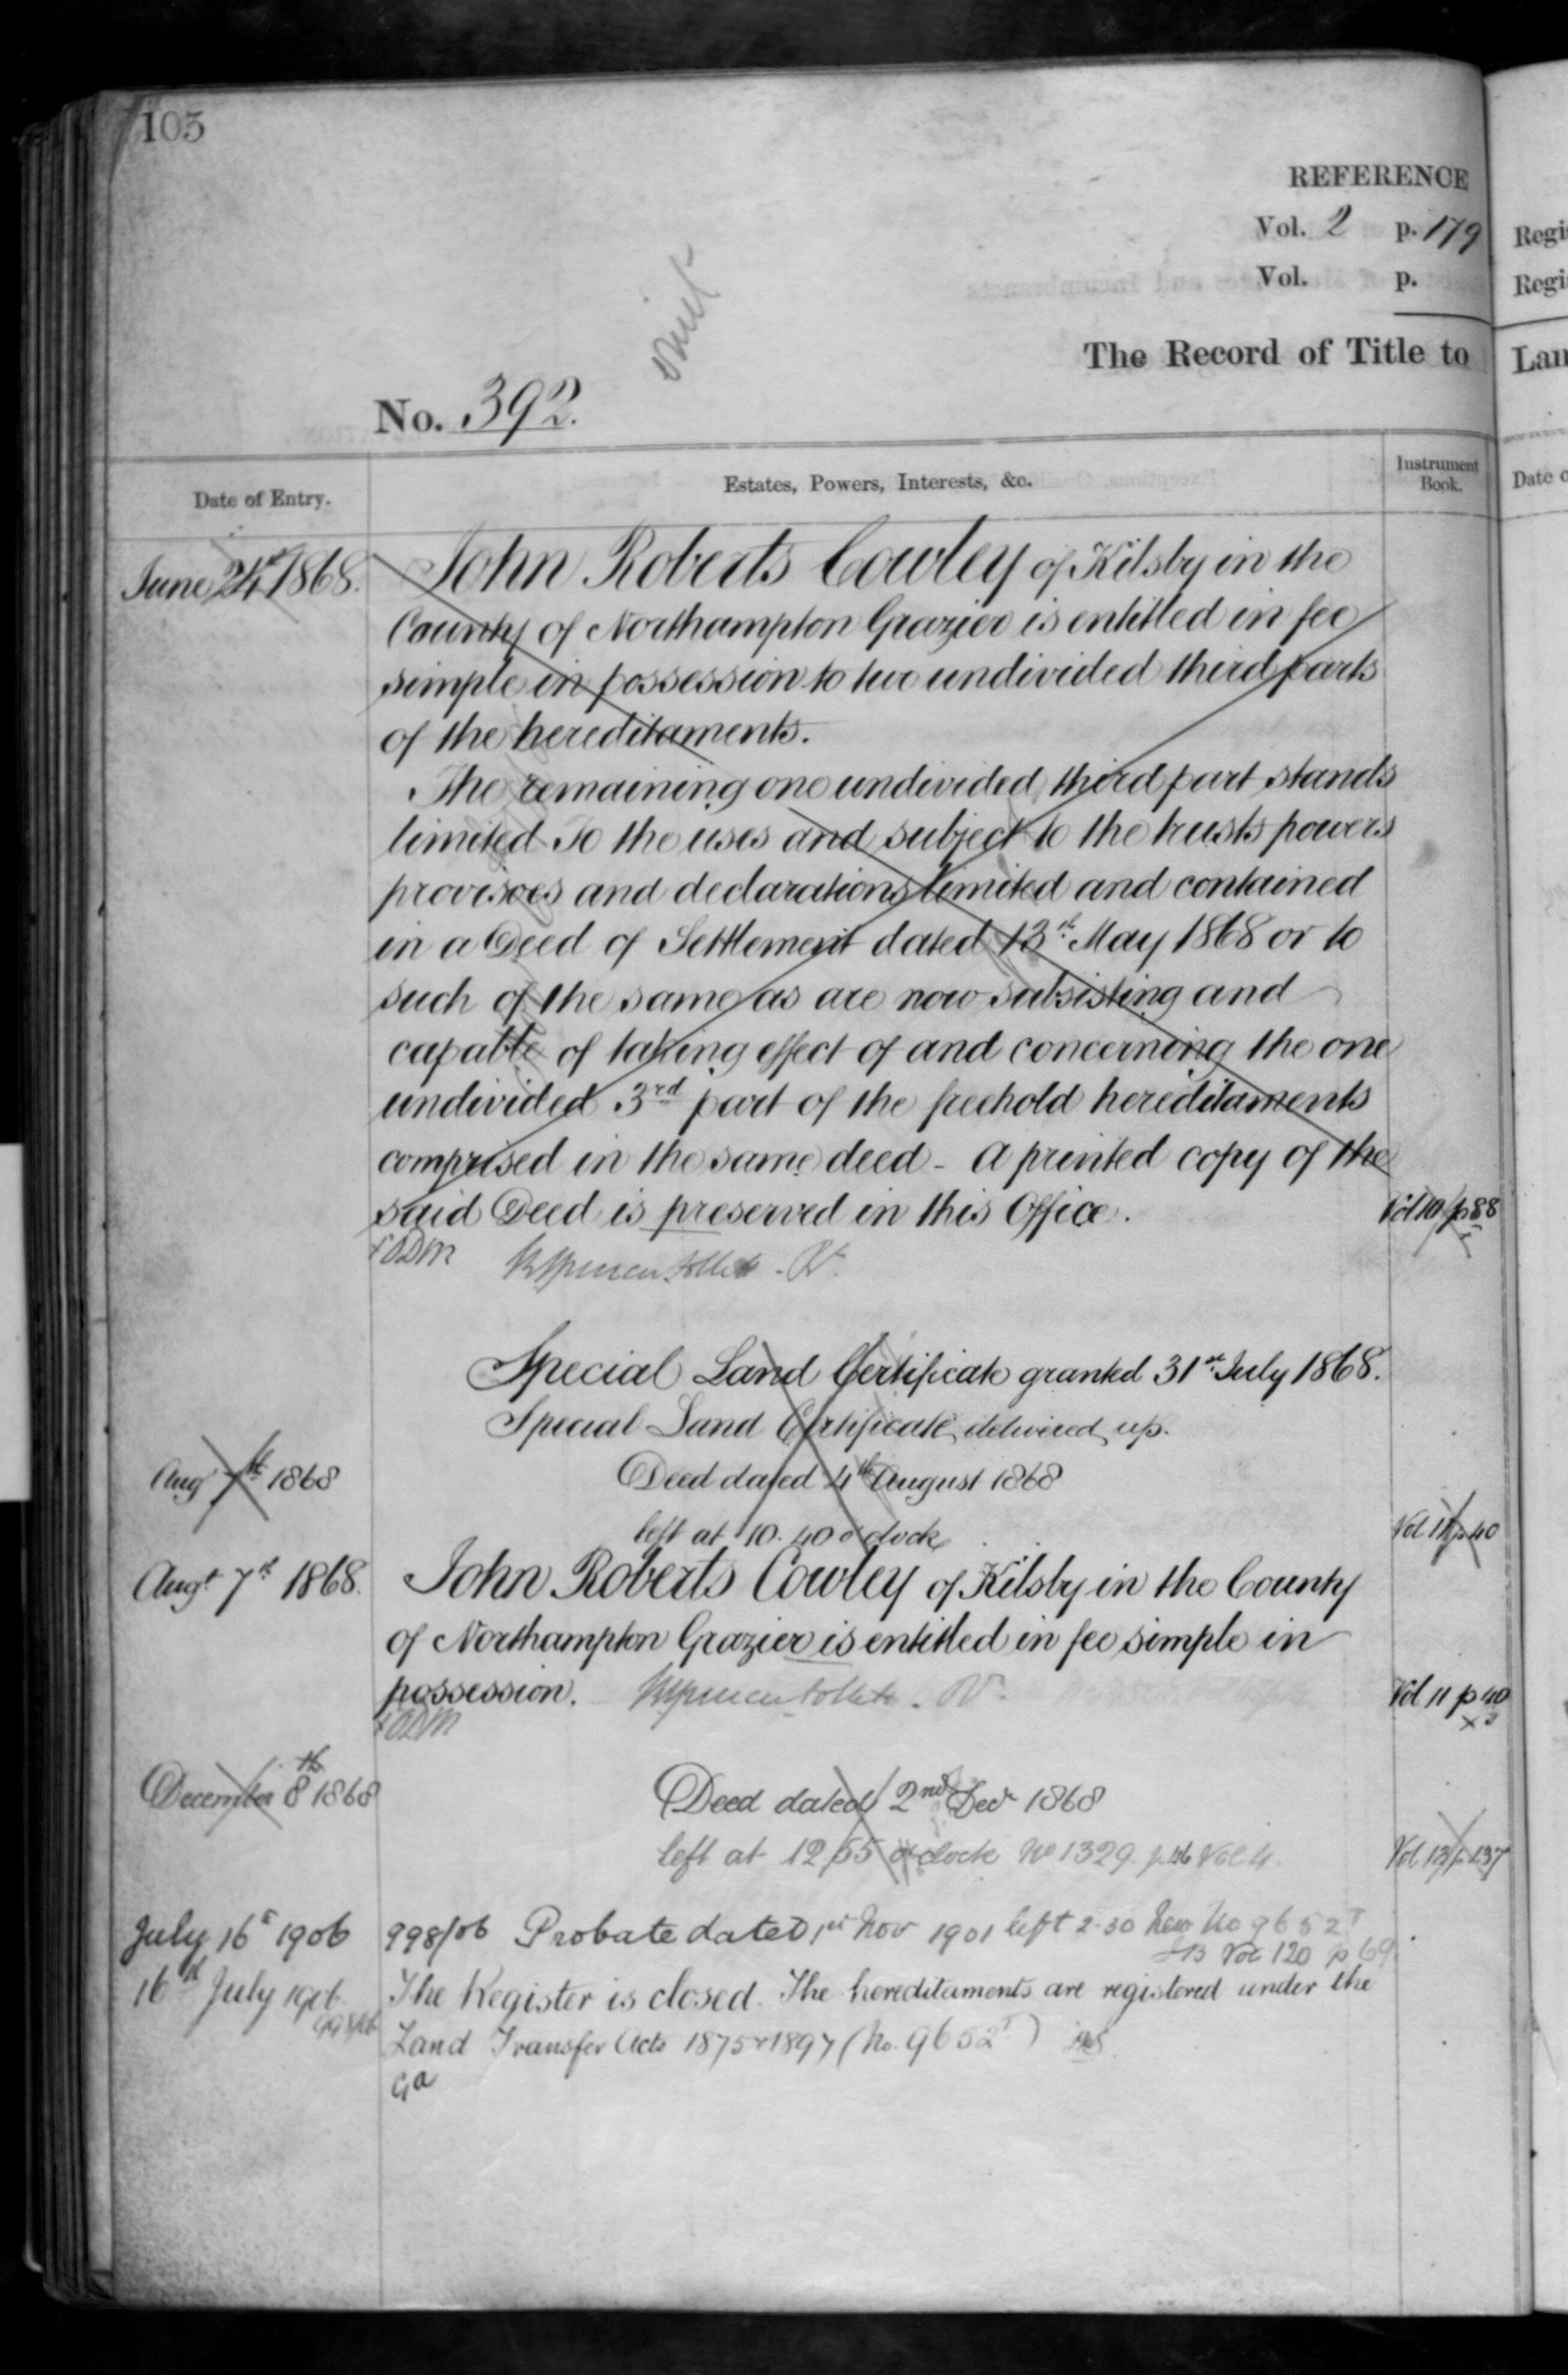 105
REFERENCE
Vol. 2 p. 179
Vol. p.
The Record of Title to
omit
No. 392.
Date of Entry.
Estates, Powers, Interests, &c.
Instrument
Book.
June 24th 1868.
John Roberts Cowley of Kilsby in the
County of Northampton Grazier is entitled in fee
simple in possession to two undivided third parts
of the hereditaments.
The remaining one undivided third part stands
limited To the uses and subject to the trusts powers
provisoes and declarations limited and contained
in a Deed of Settlement dated 13th May 1868 or to
such of the same as are now subsisting and
capable of taking effect of and concerning the one
undivided 3rd part of the freehold hereditaments
comprised in the same deed - A printed copy of the
said Deed is preserved in this Office.
Vol 10 p 88
Special Land Certificate granted 31st July 1868.
Special Land Certificate delivered up.
Augt 7th 1868
Deed dated 4th August 1868
left at 10.40 o'clock
Vol 11 p 40
Augt 7th 1868.
John Roberts Cowley of Kilsby in the County
of Northampton Grazier is entitled in fee simple in
possession.
Vol 11 p 40
December 8th 1868
Deed dated 2nd Decr 1868
left at 12.55 o'clock No 1329. p. 46 Vol 4.
Vol 13 p 137
July 16th 1906
998/06 Probate dated 1st Nov 1901 left 2.30 New No 9652T
Vol 120 p 69
16th July 1906
998/06
The Register is closed. The hereditaments are registered under the
Land Transfer Acts 1875 & 1897 (No. 9652T)
Ga
Regi
Regi
Lan
Date o